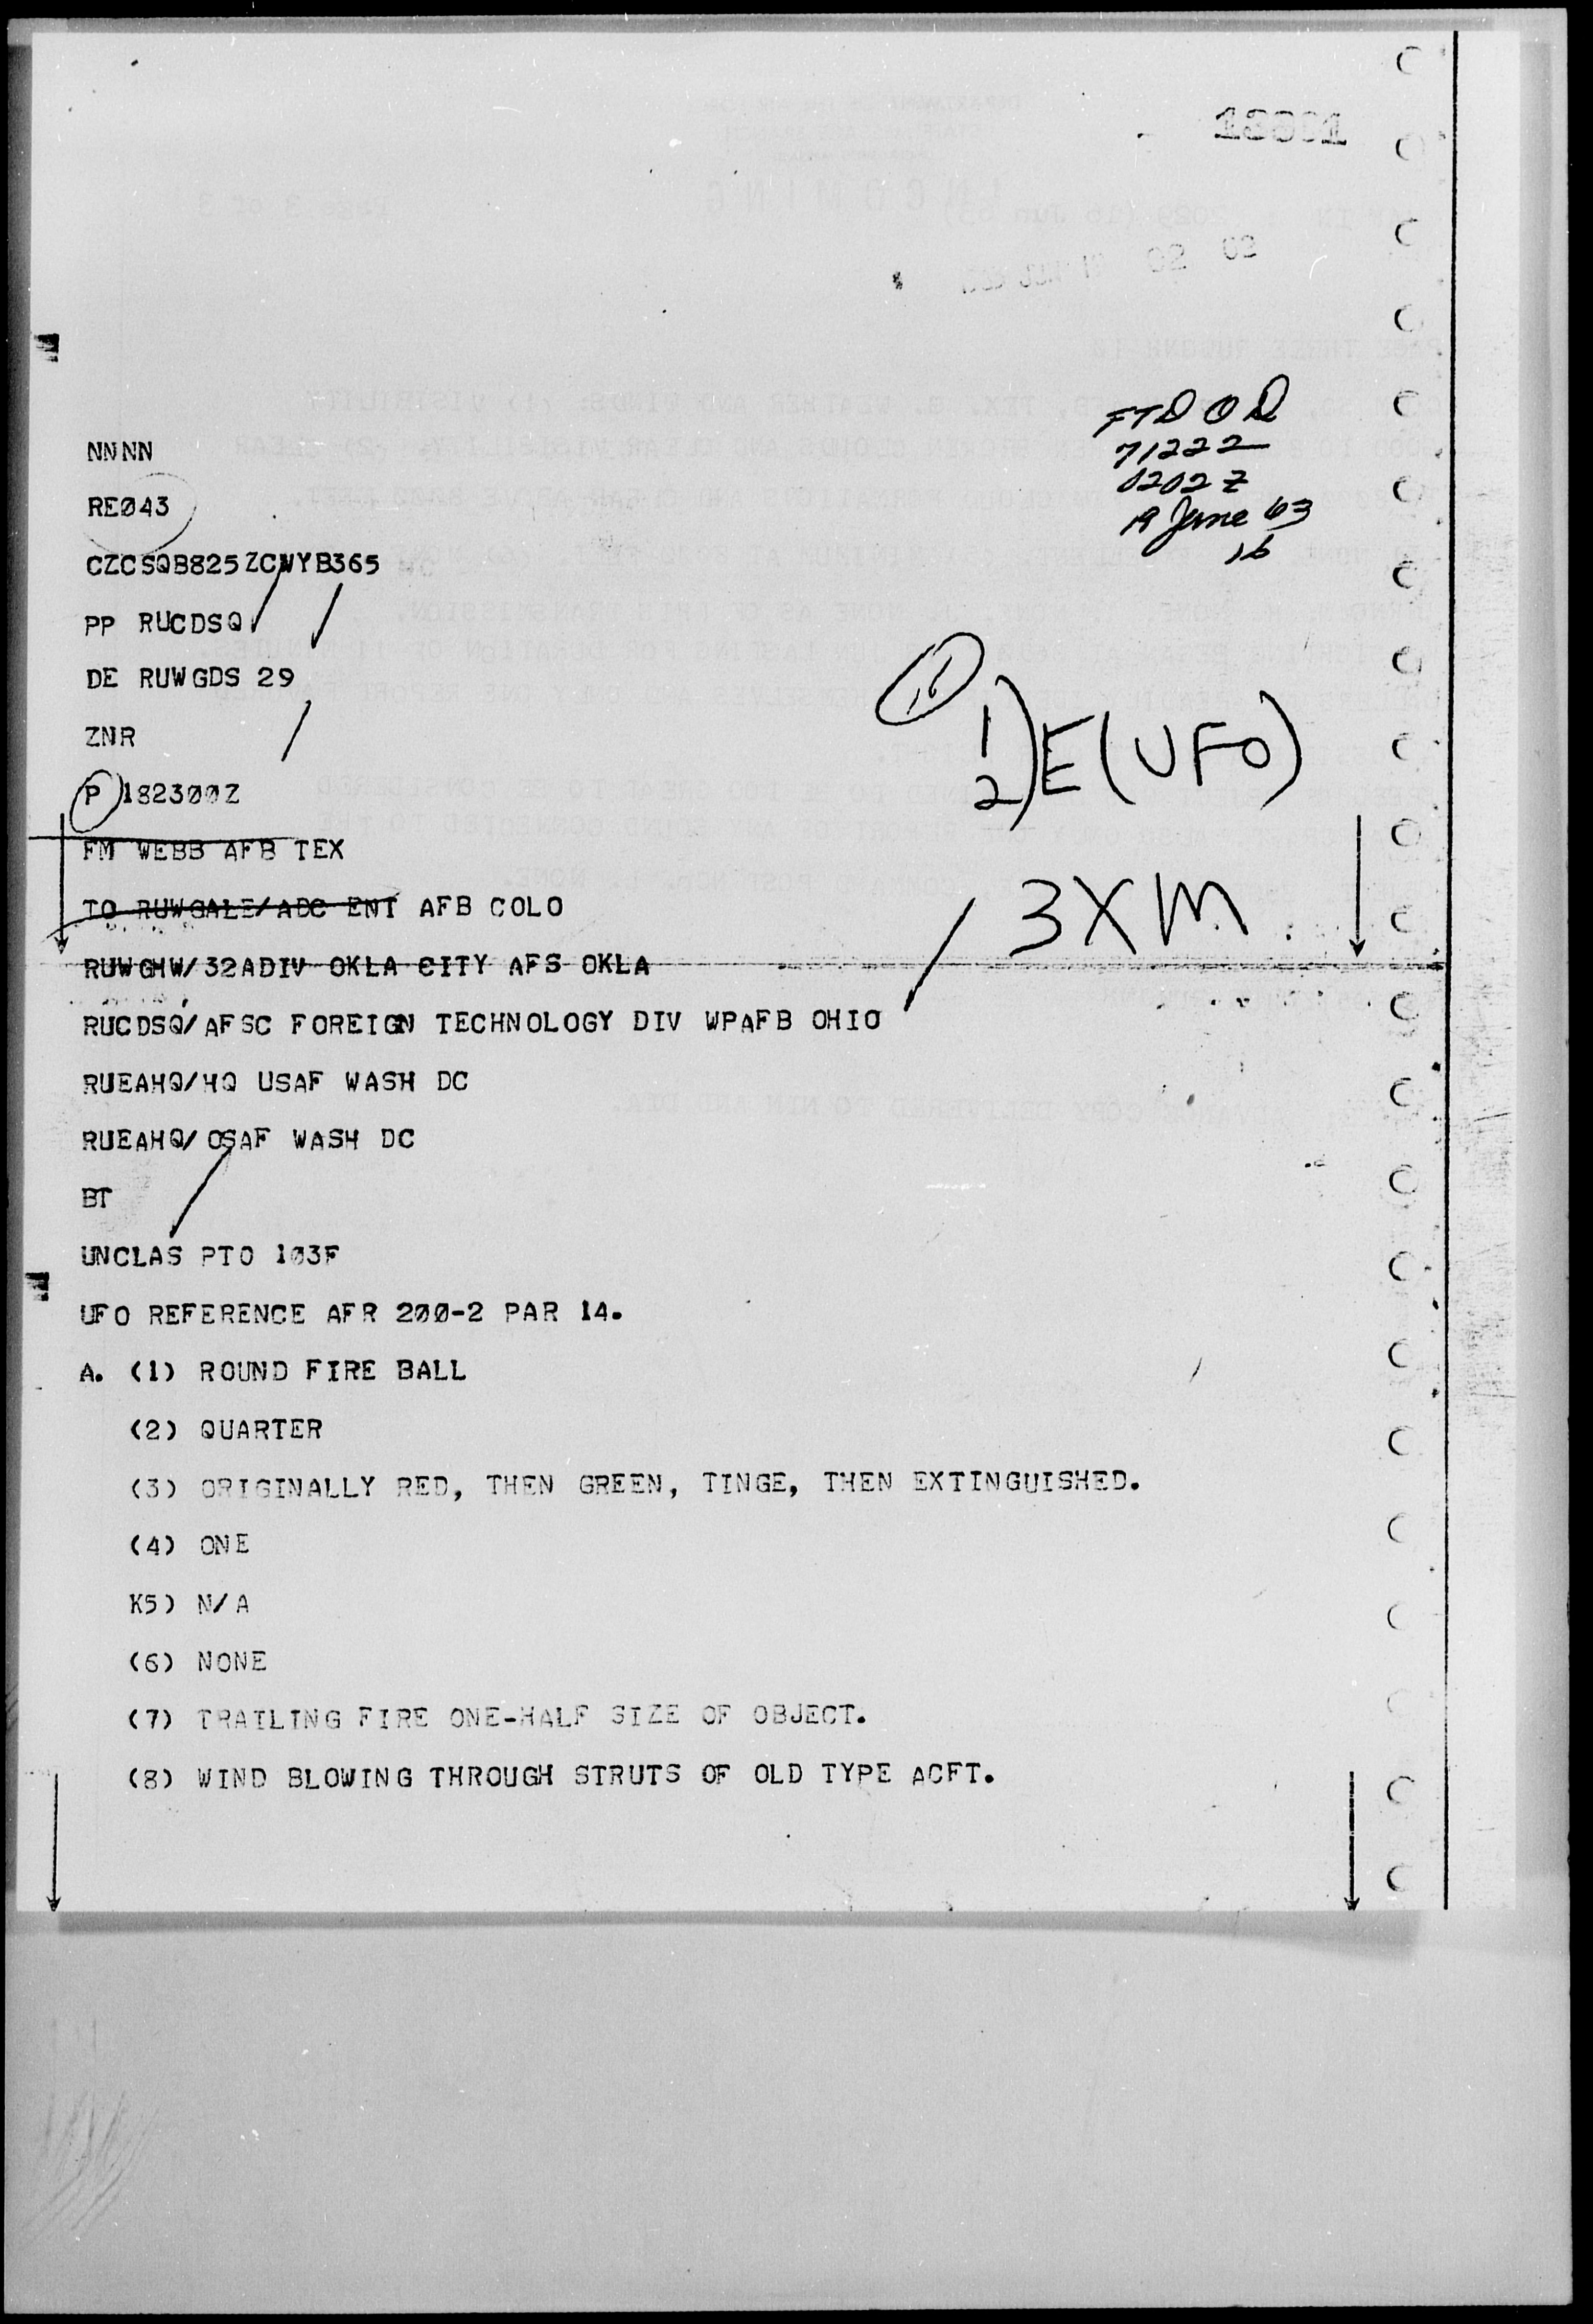 02 02
FTD O D
71222
0202 Z
19 June 63
16
NNNN
REØ43
CZCSQB825ZCWYB365
PP RUCDSQ
DE RUWGDS 29
ZNR
P 1823ØØZ
16
1) E (UFO)
2)
FM WEBB AFB TEX
TO RUWGALE/ADC ENT AFB COLO
3XM
RUWGHW/32ADIV OKLA CITY AFS OKLA
RUCDSQ/AFSC FOREIGN TECHNOLOGY DIV WPAFB OHIO
RUEAHQ/HQ USAF WASH DC
RUEAHQ/OSAF WASH DC
BT
UNCLAS PTO 1Ø3F
UFO REFERENCE AFR 2ØØ-2 PAR 14.
A. (1) ROUND FIRE BALL
(2) QUARTER
(3) ORIGINALLY RED, THEN GREEN, TINGE, THEN EXTINGUISHED.
(4) ONE
K5) N/A
(6) NONE
(7) TRAILING FIRE ONE-HALF SIZE OF OBJECT.
(8) WIND BLOWING THROUGH STRUTS OF OLD TYPE ACFT.